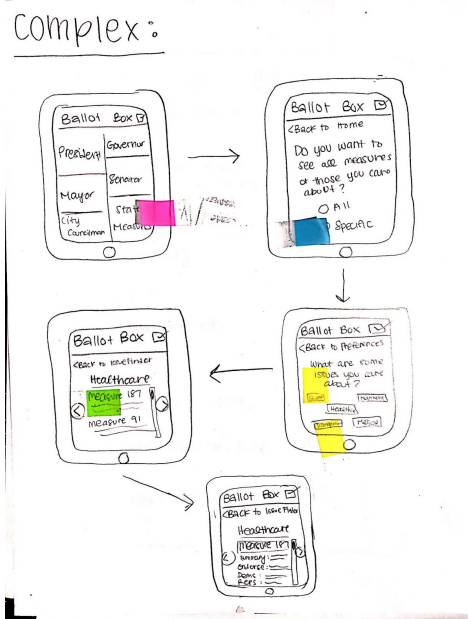 complex:
Ballot Box
President
Governor
Senator
Mayor
State
Measures
City
Councilman
Ballot Box
<Back to Home
Do you want to
see all measures
or those you care
about?
All
Specific
Ballot Box
<Back to Preferences
What are some
issues you care
about?
Ballot Box
<Back to Issue Finder
Healthcare
Measure 187
Measure 91
Ballot Box
<Back to Issue Finder
Healthcare
Measure 187
Summary:
Endorse:
Dems:
Reps: